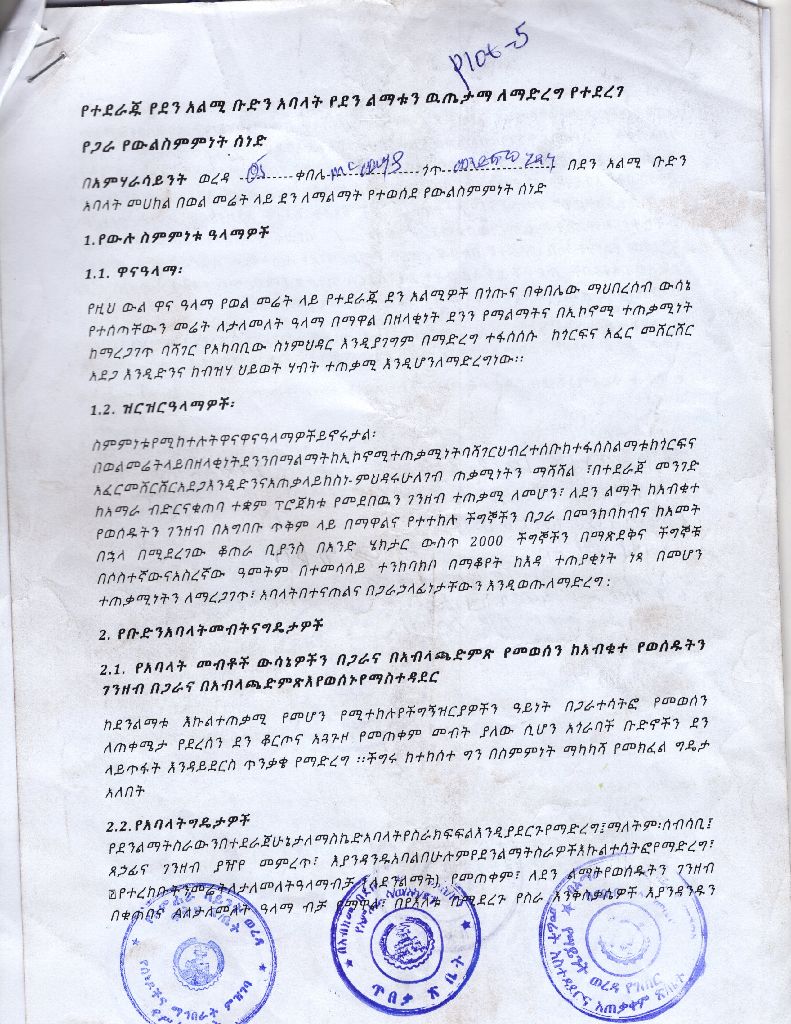 Plot-5
የተደራጁ የደን አልሚ ቡድን አባላት የደን ልማቱን ዉጤታማ ለማድረግ የተደረገ
የጋራ የውልስምምነት ሰነድ
በአምሃራሳይንት ወረዳ ቀበሌ ጎጥ በደን አልሚ ቡድን
አባላት መሀከል በወል መሬት ላይ ደን ለማልማት የተወሰደ የውልስምምነት ሰነድ
1.የውሉ ስምምነቱ ዓላማዎች
1.1. ዋናዓላማ፡
የዚህ ውል ዋና ዓላማ የወል መሬት ላይ የተደራጁ ደን አልሚዎች በጎጡና በቀበሌው ማህበረሰብ ውሳኔ
የተሰጣቸውን መሬት ለታለመለት ዓላማ በማዋል በዘላቂነት ደንን የማልማትና በኢኮኖሚ ተጠቃሚነት
ከማረጋገጥ ባሻገር የአካባቢው ስነምህዳር እንዲያገግም በማድረግ ተፋሰሱ ከጎርፍና አፈር መሸርሸር
አደጋ እንዲድንና ከብዝሃ ህይወት ሃብት ተጠቃሚ እንዲሆንለማድረግነው፡፡
1.2. ዝርዝርዓላማዎች፡
ስምምነቱየሚከተሉትዋናዋናዓላማዎችይኖሩታል፡
በወልመሬትላይበዘላቂነትደንንበማልማትከኢኮኖሚተጠቃሚነትባሻገርህብረተሰቡከተፋሰስልማቱከጎርፍና
አፈርመሸርሸርአደጋእንዲድንናአጠቃላይከስነ-ምህዳሩሁለገብ ጠቃሚነትን ማሻሻል ፣በተደራጀ መንገድ
ከአማራ ብድርናቁጠባ ተቋም ፕሮጀክቱ የመደበዉን ገንዘብ ተጠቃሚ ለመሆን፣ ለደን ልማት ከአብቁተ
የወሰዱትን ገንዘብ በአግባቡ ጥቅም ላይ በማዋልና የተተከሉ ችግኞችን በጋራ በመንከባከብና ከአመት
በኋላ በሚደረገው ቆጠራ ቢያንስ በአንድ ሄክታር ውስጥ 2000 ችግኞችን በማጽደቅና ችግኞቹ
በሶስተኛውናአስረኛው ዓመትም በተመሳሳይ ተንከባክቦ በማቆየት ከእዳ ተጠያቂነት ነጻ በመሆን
ተጠቃሚነትን ለማረጋገጥ፣ አባላትበተናጠልና በጋራኃላፊነታቸውን እንዲወጡለማድረግ፡
2. የቡድንአባላትመብትናግዴታዎች
2.1. የአባላት መብቶች ውሳኔዎችን በጋራና በአብላጫድምጽ የመወሰን ከአብቁተ የወሰዱትን
ገንዘብ በጋራና በአብላጫድምጽእየወሰኑየማስተዳደር
ከደንልማቱ እኩልተጠቃሚ የመሆን የሚተከሉየችግኝዝርያዎችን ዓይነት በጋራተሳትፎ የመወሰን
ለጠቀሜታ የደረሰን ደን ቆርጦና አጓጉዞ የመጠቀም መብት ያለው ሲሆን አጎራባች ቡድኖችን ደን
ላይጥፋት እንዳይደርስ ጥንቃቄ የማድረግ ፡፡ችግሩ ከተከሰተ ግን በስምምነት ማካካሻ የመክፈል ግዴታ
አለበት
2.2.የአባላትግዴታዎች
የደንልማትስራውንበተደራጀሁኔታለማስኬድአባላትየስራክፍፍልእንዲያደርጉየማድረግ፤ማለትም፡ሰብሳቢ፤
ጸኃፊና ገንዘብ ያዥየ መምረጥ፣ እያንዳንዱአባልበሁሉምየደንልማትስራዎችእኩልተሳትፎየማድረግ፣
የተረከቡትንመሬትለታለመለትዓላማብቻ (ለደንልማት) የመጠቀም፣ ለደን ልማትየወሰዱትን ገንዘብ
በቁጠባና ለታለመለት ዓላማ ብቻ የማዋል፣ የስራ እንቅስቃሴዎች እያንዳንዱን
ጥበታ ጽ ቤት